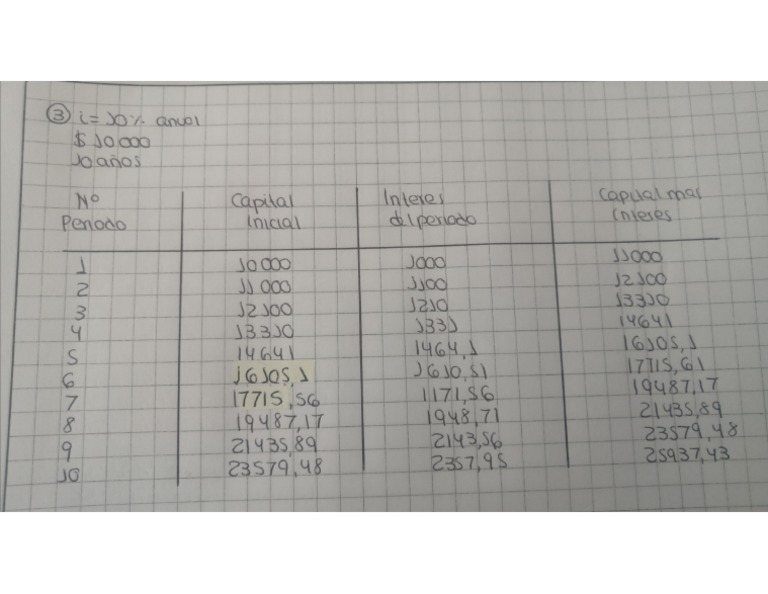 ③ i = 10% anual
$ 10000
10 años
Nº Capital Interes Capital mas
Periodo Inicial del periodo interes
1 10000 1000 11000
2 11000 1100 12100
3 12100 1210 13310
4 13310 1331 14641
5 14641 1464,1 16105,1
6 16105,1 1610,51 17715,61
7 17715,56 1171,56 19487,17
8 19487,17 1948,71 21435,89
9 21435,89 2143,56 23579,48
10 23579,48 2357,95 25937,43